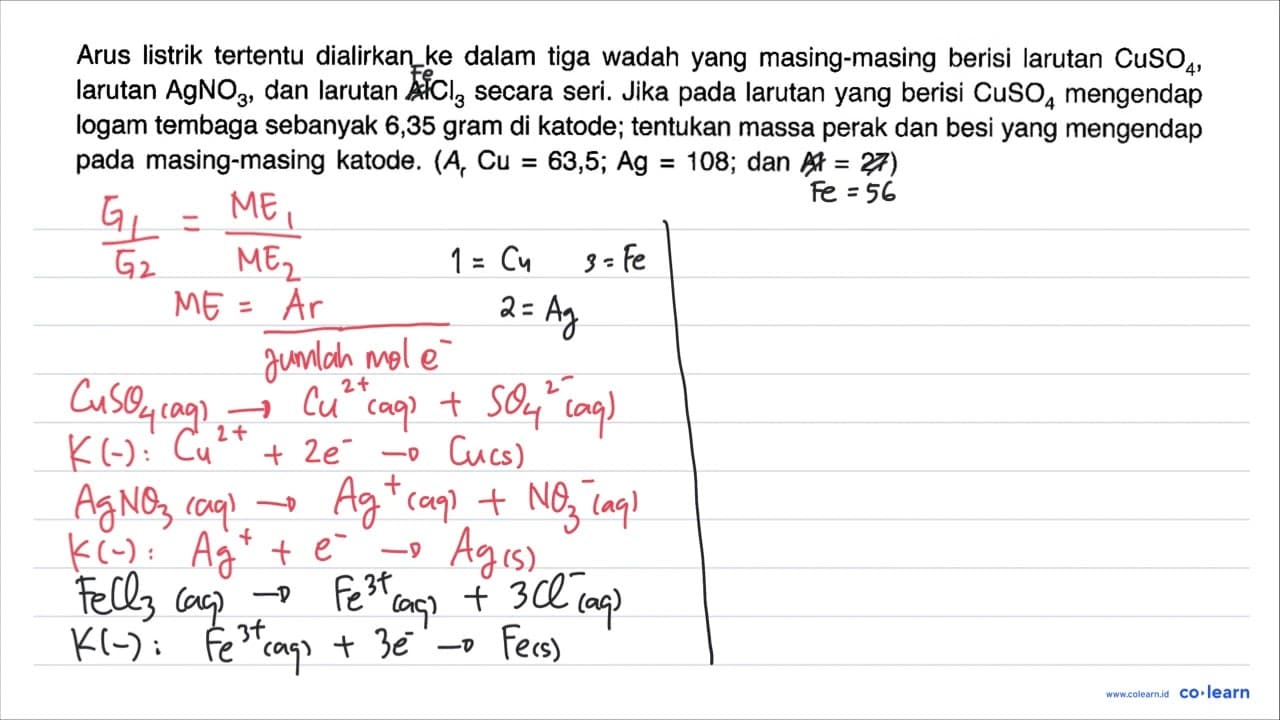 Arus listrik tertentu dialirkan ke dalam tiga wadah yang masing-masing berisi larutan CuSO₄,
Fe
larutan AgNO₃, dan larutan AlCl₃ secara seri. Jika pada larutan yang berisi CuSO₄ mengendap
logam tembaga sebanyak 6,35 gram di katode; tentukan massa perak dan besi yang mengendap
pada masing-masing katode. (Aᵣ Cu = 63,5; Ag = 108; dan Al = 27)
Fe = 56
G₁/G₂ = ME₁/ME₂
1 = Cu 3 = Fe
2 = Ag
ME = Ar/jumlah mol e⁻
CuSO₄(aq) → Cu²⁺(aq) + SO₄²⁻(aq)
K(-): Cu²⁺ + 2e⁻ → Cu(s)
AgNO₃(aq) → Ag⁺(aq) + NO₃⁻(aq)
K(-): Ag⁺ + e⁻ → Ag(s)
FeCl₃(aq) → Fe³⁺(aq) + 3Cl⁻(aq)
K(-): Fe³⁺(aq) + 3e⁻ → Fe(s)
www.colearn.id co·learn